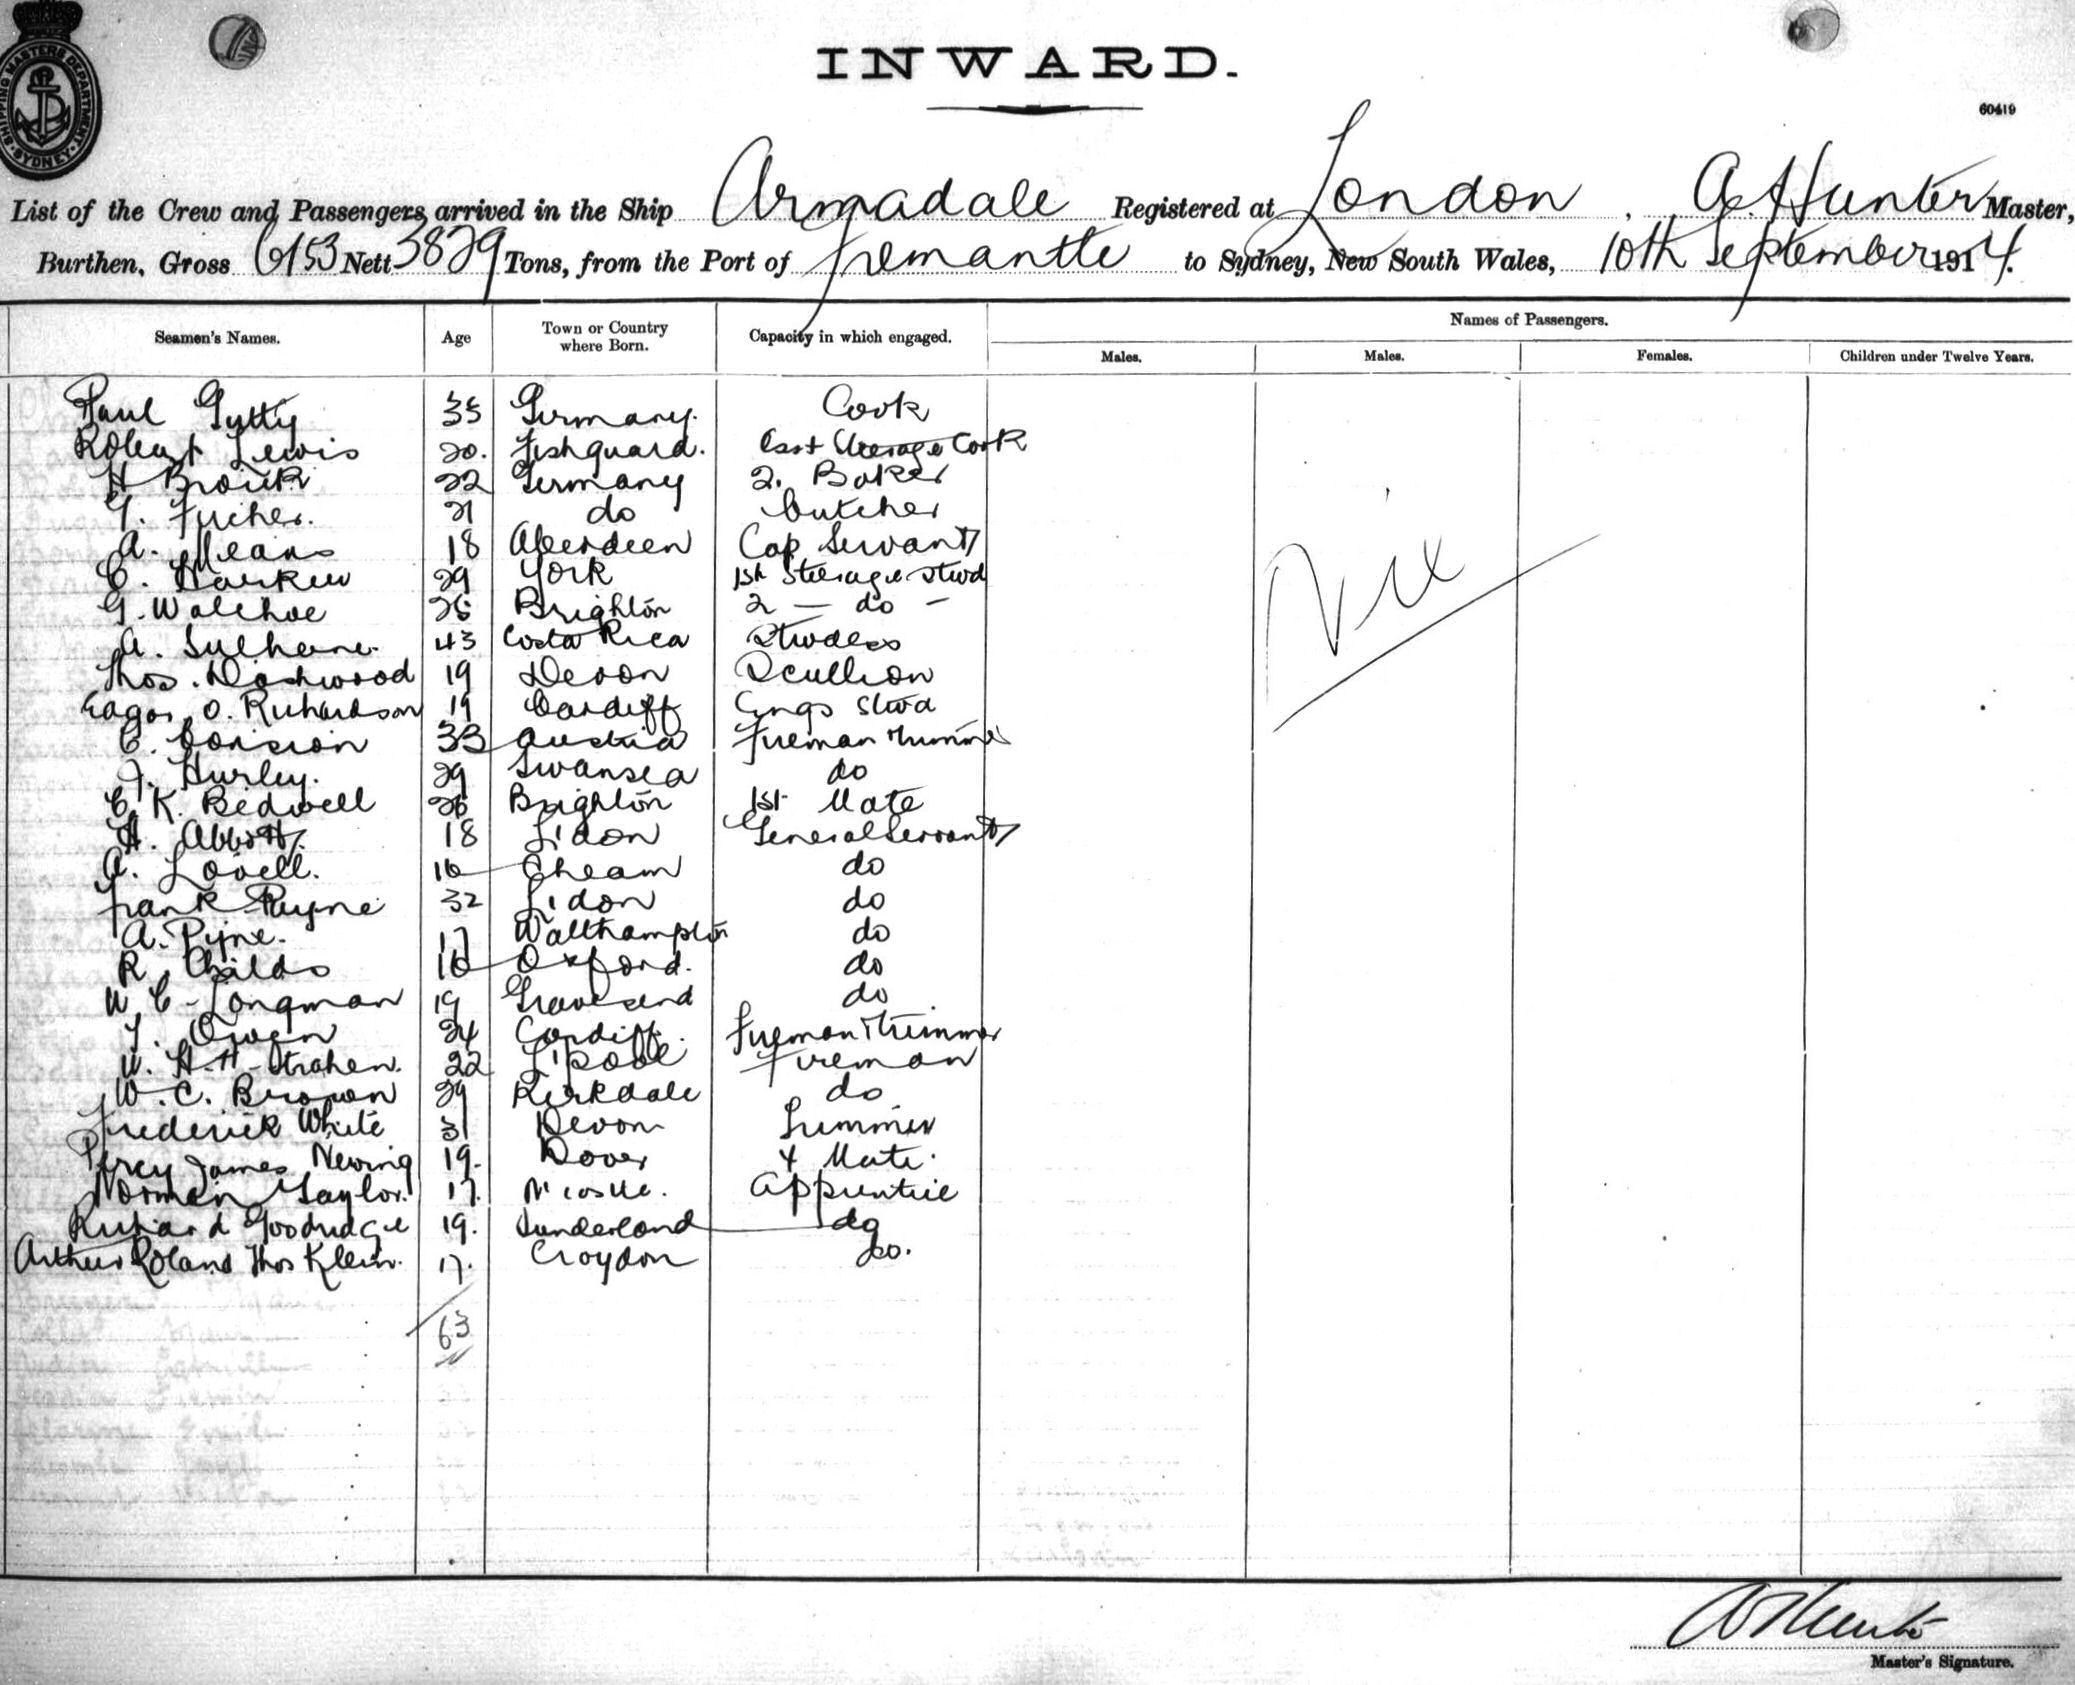 SHIPPING MASTERS DEPARTMENT SYDNEY
INWARD.
60419
List of the Crew and Passengers arrived in the Ship Armadale Registered at London, A Hunter Master,
Burthen, Gross 6153 Nett 3829 Tons, from the Port of Fremantle to Sydney, New South Wales, 10th September 1914.
Names of Passengers.
Seamen's Names. Age Town or Country where Born. Capacity in which engaged. Males. Males. Females. Children under Twelve Years.
Paul 35 Germany. Cook
Robert Lewis 20. Fishguard. Asst Steerage Cook
H 22 Germany 2. Baker
21 do butcher
A. Means 18 Aberdeen Cap Servant
C. 29 York 1st Steerage Stwd
G. 26 Brighton 2 — do —
A. 43 Costa Rica Stwdess
Thos. Dashwood 19 Devon Scullion
O. Richardson 19 Cardiff Engs Stwd
C. 33 Austria Fireman Trimmer
J. Hurley. 29 Swansea do
C. K. Bedwell 26 Brighton 1st Mate
H. Abbott 18 L'don General Servant
A. Lovell. 16 Cheam do
Frank Payne 32 L'don do
A. Pyne. 17 do
R. Childs 16 Oxford. do
W C Longman 19 Gravesend do
Owen 24 Cardiff. Fireman Trimmer
W. H. H. Strahen. 22 L'pool Fireman
W. C. Brown 29 Kirkdale do
Frederick White 31 Devon
Percy James Newing 19. Dover 4 Mate.
Norman Taylor. 17. N'castle. Apprentice
Richard Goodridge 19. Sunderland do
Arthur Roland Thos Klein. 17. Croydon do.
Nil
63
A Hunter
Master's Signature.